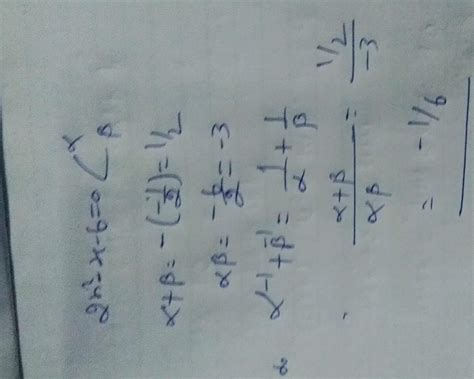 2x²-x-6=0 < α β
α+β = -(-1/2) = 1/2
αβ = -6/2 = -3
∴ α⁻¹+β⁻¹ = 1/α + 1/β
. α+β/αβ = 1/2/-3
= -1/6